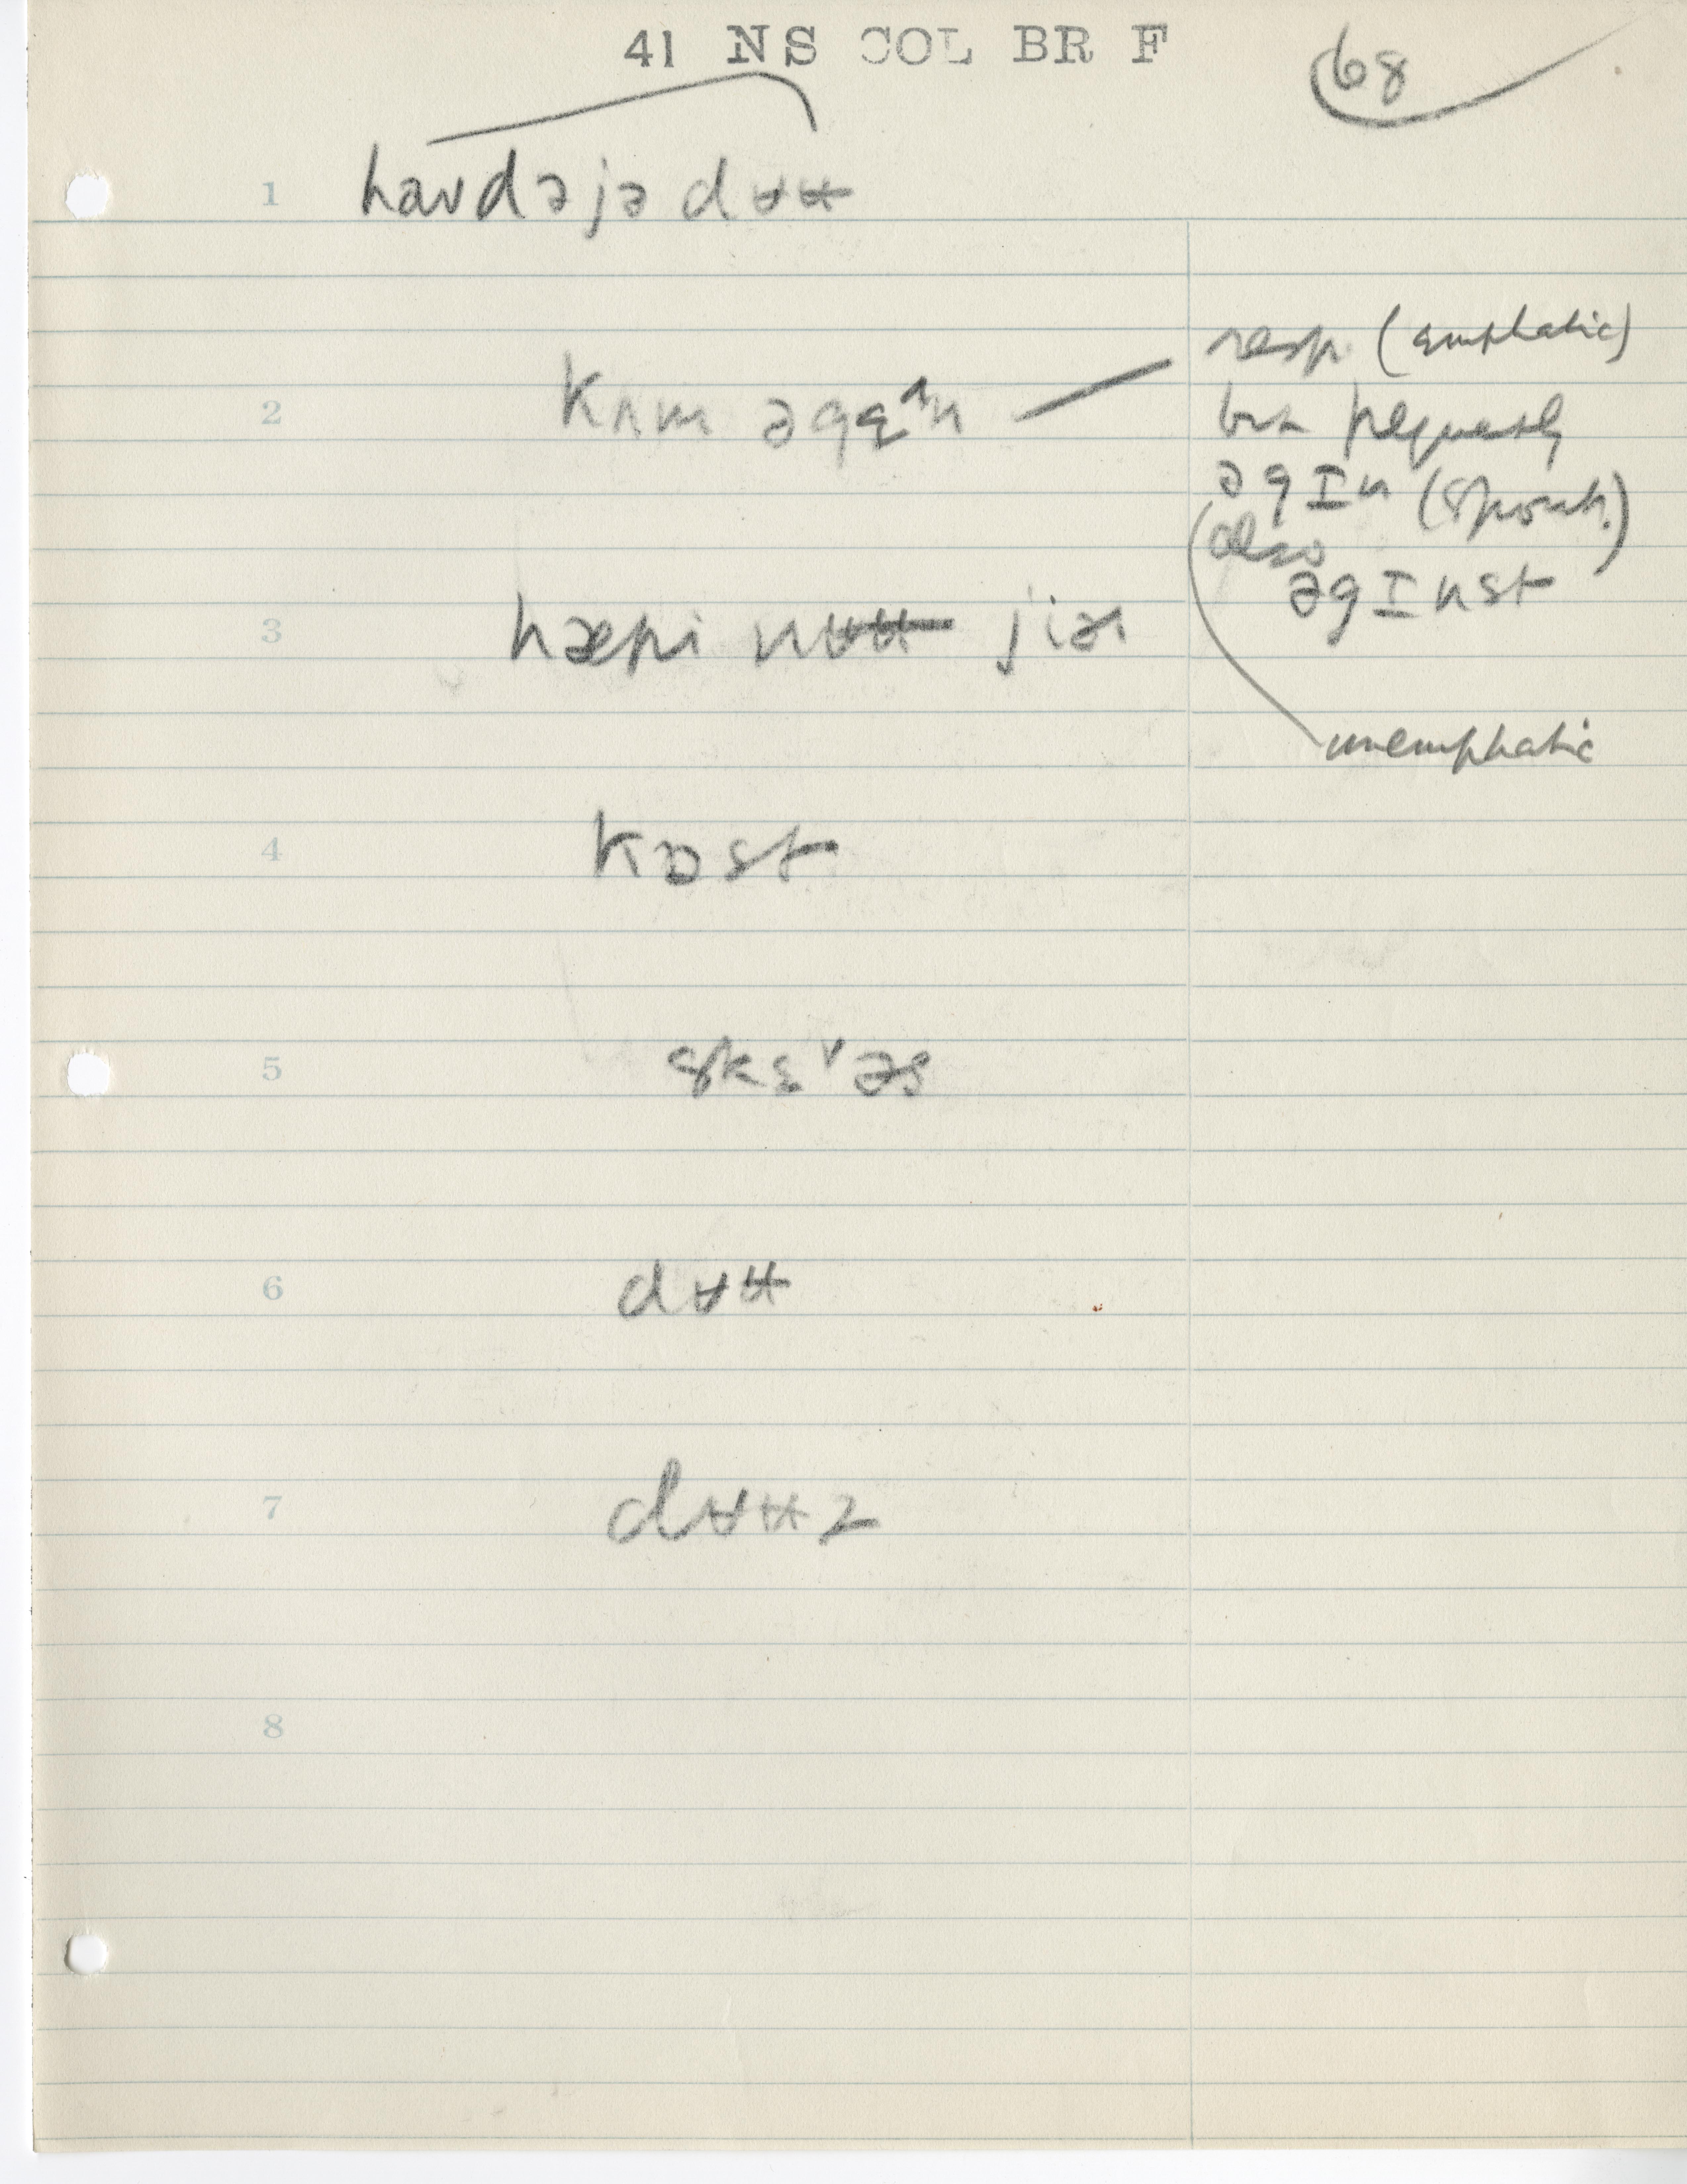 41 NS COL BR F
68
1 haʊdəjə dʉʉ
2 kʌm əgɛ˄n
resp. (emphatic)
but frequently
əgɪn (spont.)
(also
əgɪnst
unemphatic
3 hæpi nʉʉ jiɚ
4 kɒst
5 skɛ˅əs
6 dʉʉ
7 dʉʉz
8